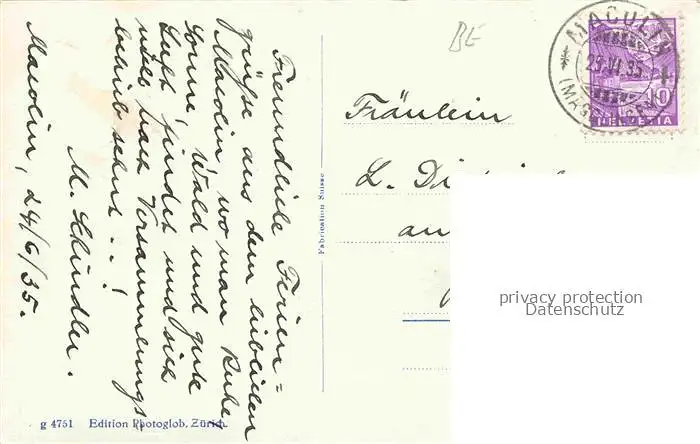 Freundliche Ferien=
grüsse aus dem lieblichen
Macolin, wo man Ruhe,
Sonne, Wald und gute
Luft findet und sich
nicht nach Versammlungs-
betrieb sehnt ...!
M. Schindler.
Macolin, 24/6/35.
BE
MACOLIN
23.VI.35
10
HELVETIA
Fräulein
L.
an
Fabrication Suisse
privacy protection
Datenschutz
g 4751 Edition Photoglob, Zürich